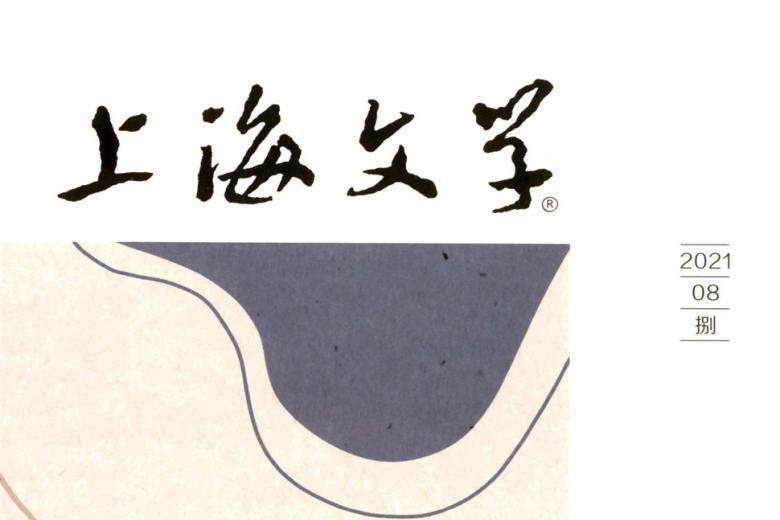 上海文学®
2021
08
捌